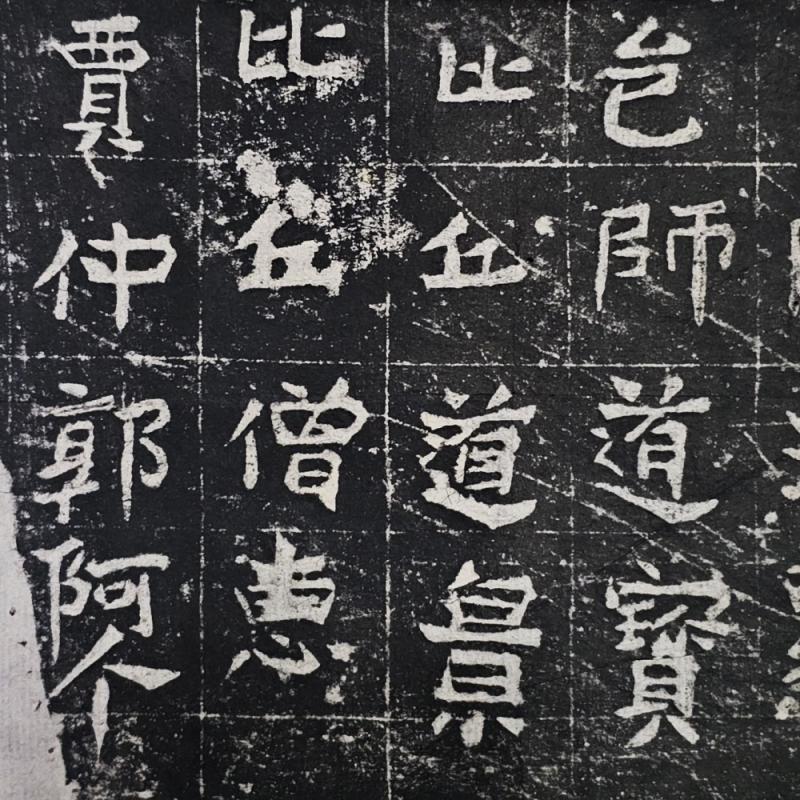 邑師道寶
比丘道景
比丘僧惠
賈仲郭阿个